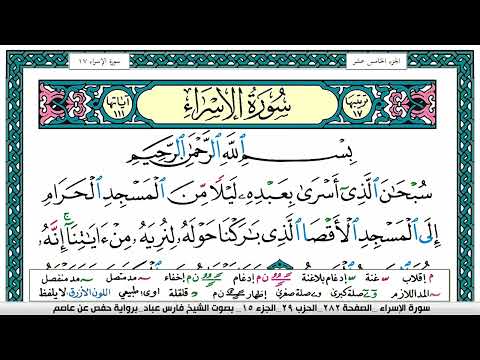 الجزء الخامس عشر
سورة الإسراء ١٧
ترتيبها ١٧
سُورَةُ الإِسْرَاءِ
آياتها ١١١
بِسْمِ ٱللَّهِ ٱلرَّحْمَٰنِ ٱلرَّحِيمِ
سُبْحَٰنَ ٱلَّذِىٓ أَسْرَىٰ بِعَبْدِهِۦ لَيْلًا مِّنَ ٱلْمَسْجِدِ ٱلْحَرَامِ
إِلَى ٱلْمَسْجِدِ ٱلْأَقْصَا ٱلَّذِى بَٰرَكْنَا حَوْلَهُۥ لِنُرِيَهُۥ مِنْ ءَايَٰتِنَآ ۚ إِنَّهُۥ
م إقلاب س غنة إدغام بلاغنة ن م إدغام ن م إخفاء مد متصل مد منفصل
المد اللازم صلة كبرى صلة صغرى إظهار ن م قلقلة اوى، طبيعي اللون الأزرق لا يلفظ
سورة الإسراء _الصفحة ٢٨٢_ الحزب ٢٩_ الجزء ١٥_ بصوت الشيخ فارس عباد_ برواية حفص عن عاصم